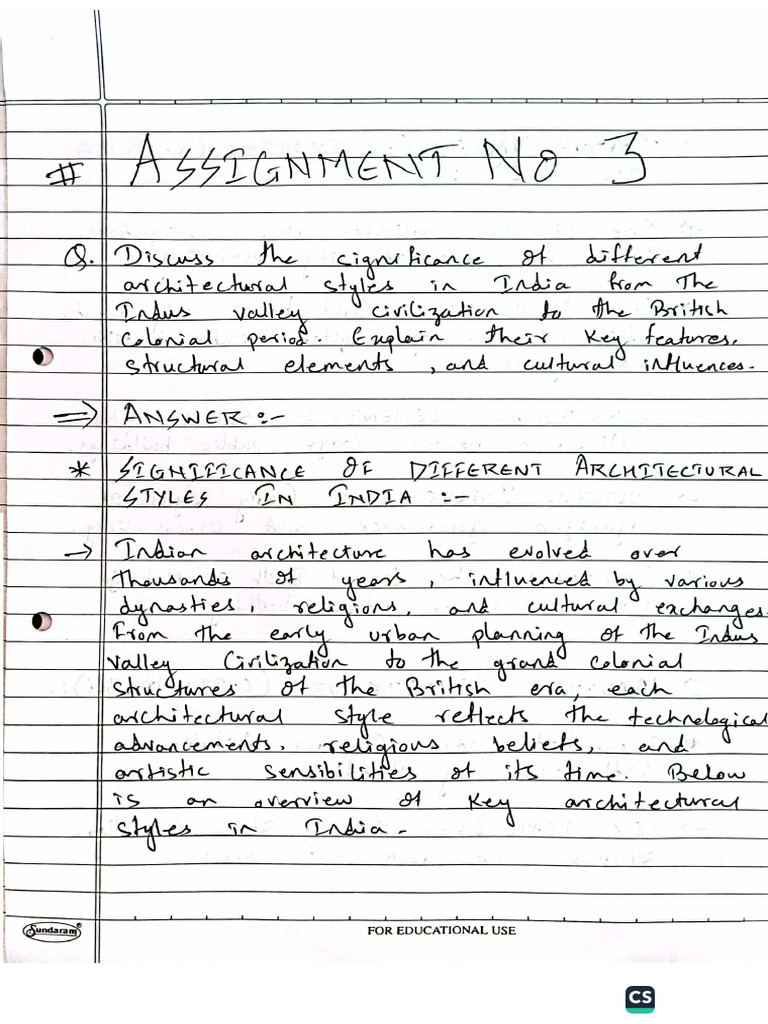 # ASSIGNMENT NO 3
Q. Discuss the significance of different
architectural styles in India from The
Indus valley civilization to the British
Colonial period. Explain their key features,
structural elements, and cultural influences.
=> ANSWER :-
* SIGNIFICANCE OF DIFFERENT ARCHITECTURAL
STYLES IN INDIA :-
→ Indian architecture has evolved over
thousands of years, influenced by various
dynasties, religions, and cultural exchanges.
From the early urban planning of the Indus
valley Civilization to the grand colonial
structures of the British era, each
architectural style reflects the technological
advancements, religious beliefs, and
artistic sensibilities of its time. Below
is an overview of key architectural
styles in India.
Sundaram®
FOR EDUCATIONAL USE
CS